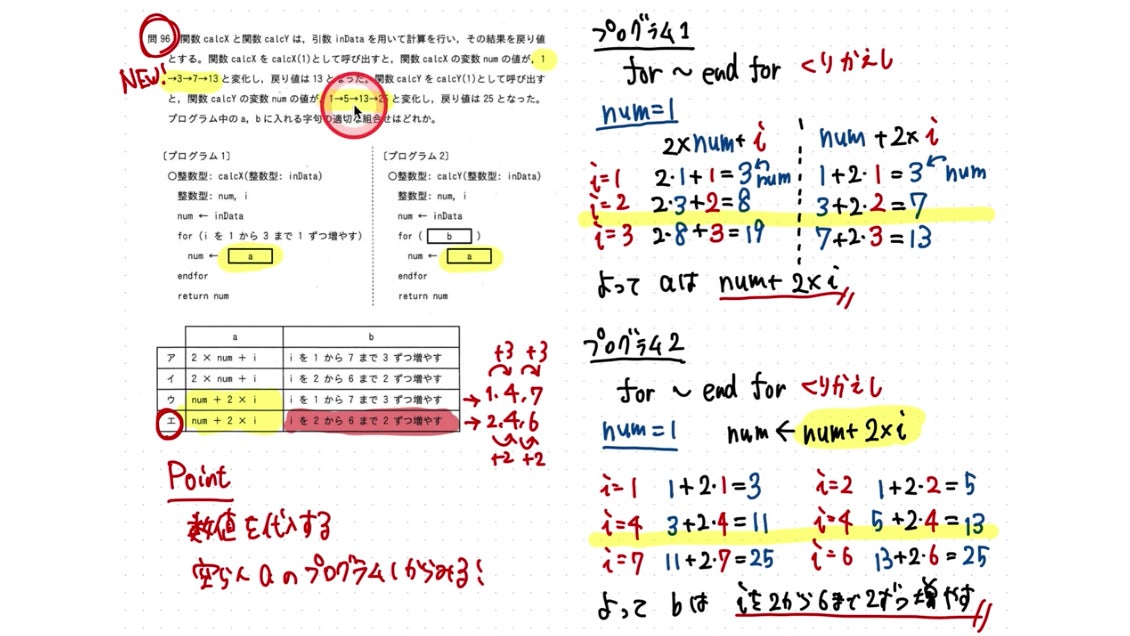 問96 関数 calcX と関数 calcY は，引数 inData を用いて計算を行い，その結果を戻り値
とする。関数 calcX を calcX(1)として呼び出すと，関数 calcX の変数 num の値が，1
→3→7→13 と変化し，戻り値は 13 となった。関数 calcY を calcY(1)として呼び出す
と，関数 calcY の変数 num の値が，1→5→13→25 と変化し，戻り値は 25 となった。
プログラム中の a，b に入れる字句の適切な組合せはどれか。
NEW!
〔プログラム 1〕
○整数型: calcX(整数型: inData)
整数型: num, i
num ← inData
for (i を 1 から 3 まで 1 ずつ増やす)
num ← a
endfor
return num
〔プログラム 2〕
○整数型: calcY(整数型: inData)
整数型: num, i
num ← inData
for ( b )
num ← a
endfor
return num
a b
ア 2 × num + i i を 1 から 7 まで 3 ずつ増やす
イ 2 × num + i i を 2 から 6 まで 2 ずつ増やす
ウ num + 2 × i i を 1 から 7 まで 3 ずつ増やす
エ num + 2 × i i を 2 から 6 まで 2 ずつ増やす
+3 +3
→ 1.4.7
→ 2.4.6
+2 +2
Point
数値を代入する
空らん a のプログラム1からみる!
プログラム1
for ~ end for くりかえし
num=1
2×num+i num+2×i
i=1 2・1+1=3 num 1+2・1=3 num
i=2 2・3+2=8 3+2・2=7
i=3 2・8+3=19 7+2・3=13
よって aは num+2×i
プログラム2
for ~ end for くりかえし
num=1 num ← num+2×i
i=1 1+2・1=3 i=2 1+2・2=5
i=4 3+2・4=11 i=4 5+2・4=13
i=7 11+2・7=25 i=6 13+2・6=25
よって bは iを2から6まで2ずつ増やす